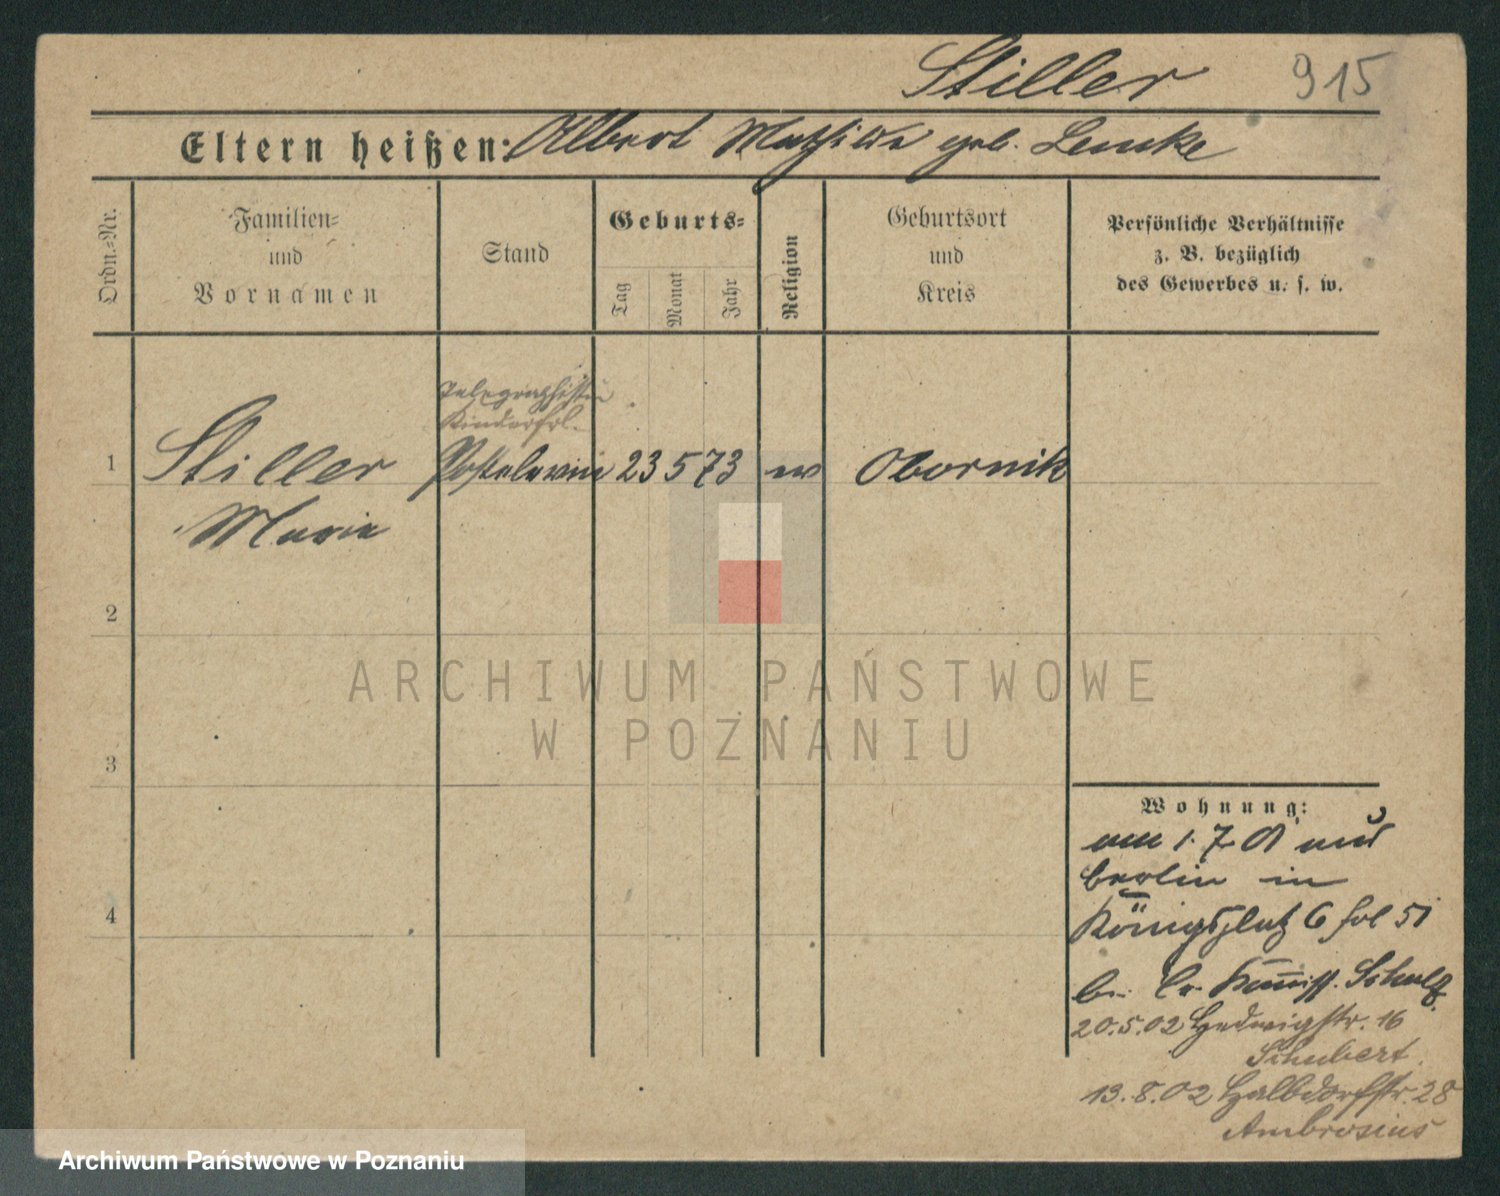 Stiller 915
Eltern heißen: Albert Mathilde geb. Lemke
Ordn.=Nr.
Familien=
und
Vornamen
Stand
Geburts=
Tag
Monat
Jahr
Religion
Geburtsort
und
Kreis
Persönliche Verhältnisse
z. B. bezüglich
des Gewerbes u. s. w.
Telegraphistin
Kinderfrl.
1 Stiller 23 5 73 ev Obornik
Marie
2
3
4
Wohnung:
am 1. 7. 01 aus
Berlin in
Königsplatz 6 fol 51
b. Cr. Kommiss. Schulz
20.5.02 Hedwigstr. 16
Schubert
13.8.02 Halbdorfstr. 28
Ambrosius
ARCHIWUM PAŃSTWOWE
W POZNANIU
Archiwum Państwowe w Poznaniu